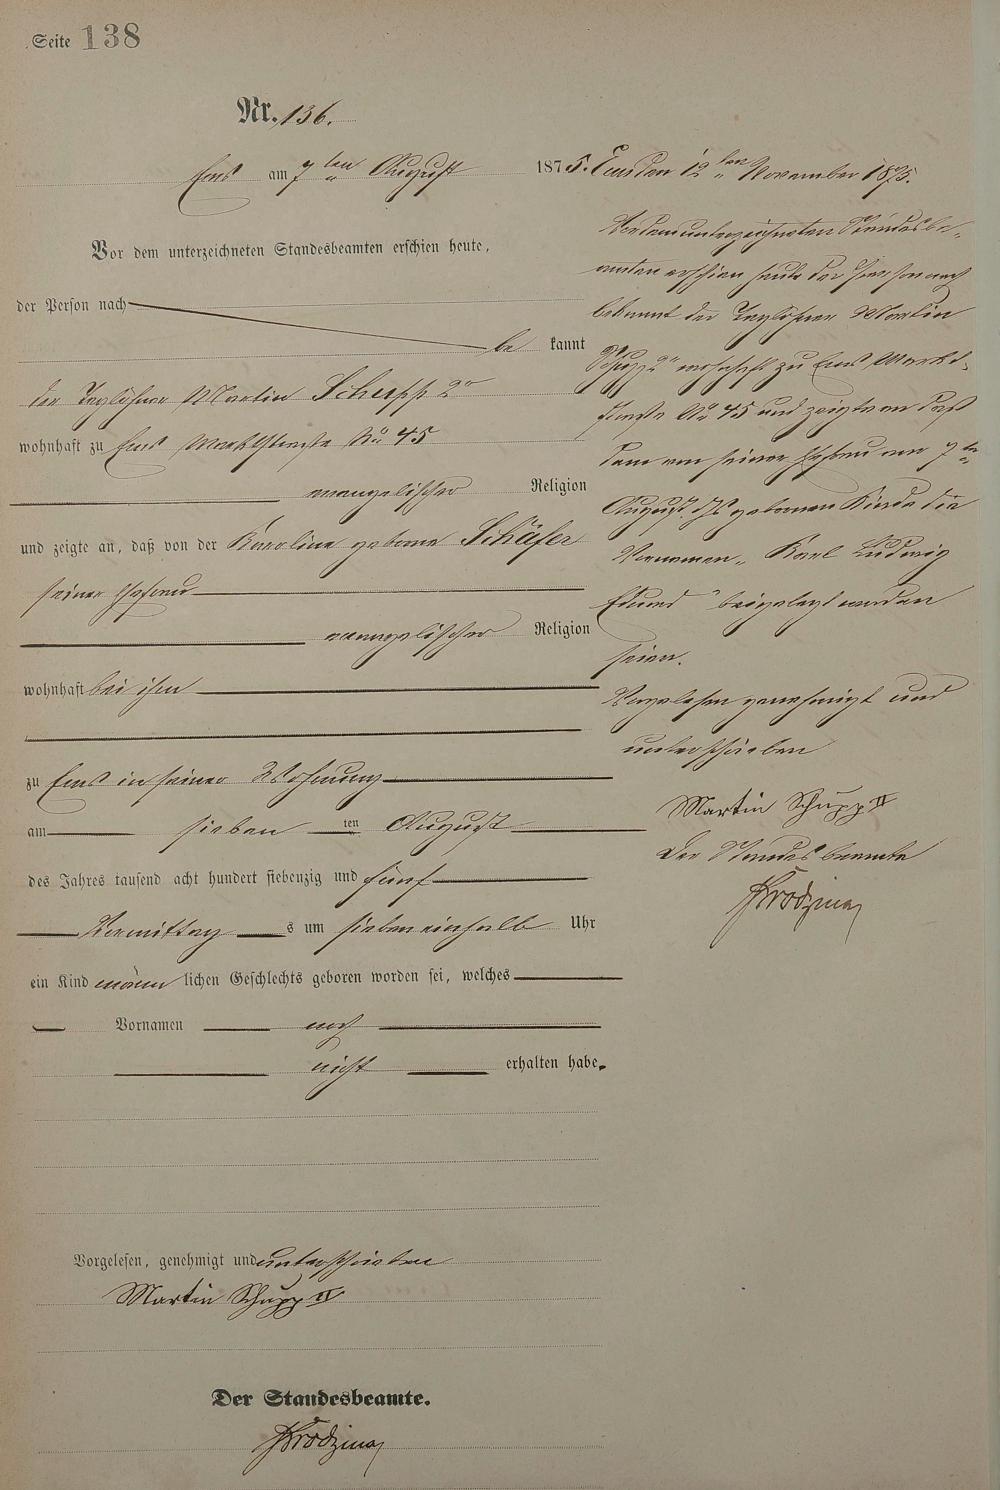 Seite 138
Nr. 136.
Ems am 7 ten August 1875.
Vor dem unterzeichneten Standesbeamten erschien heute,
der Person nach
be kannt
der Taglöhner Martin Schupp 2r
wohnhaft zu Ems Marktstraße No 45
evangelischer Religion
und zeigte an, daß von der Karoline geborne Schäfer
seiner Ehefrau
evangelischer Religion
wohnhaft bei ihm
zu Ems in seiner Wohnung
am sieben ten August
des Jahres tausend acht hundert siebenzig und fünf
Vormittag s um sieben einhalb Uhr
ein Kind männ lichen Geschlechts geboren worden sei, welches
Vornamen noch
nicht erhalten habe.
Vorgelesen, genehmigt und unterschrieben
Martin Schupp II
Der Standesbeamte.
Ems den 12 ten November 1875.
Vor dem unterzeichneten Standesbe-
amten erschien heute der Person nach
bekannt der Taglöhner Martin
Schupp 2r wohnhaft zu Ems, Markt-
straße No 45 und zeigte an daß
dem von seiner Ehefrau am 7 ten
August d Js gebornen Kinde die
Vornamen „Karl Ludwig
Eduard" beigelegt worden
seien.
Vorgelesen genehmigt und
unterschrieben
Martin Schupp II
Der Standesbeamte